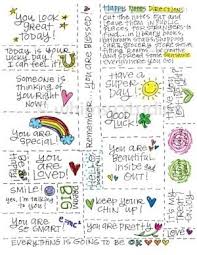 YOU LOOK
GREAT
TODAY!
Today is your
lucky day.
I can feel it.
Someone is
thinking of
you Right
Now!
You are
special!
YOU are
LOVED!
SMILE!
yes, I'm talking to you!
YOU are
SO SMART!
YOU are BLESSED
Remember
HAPPY NOTES DIRECTIONS:
Cut the notes out
and leave them in public
places for strangers to
find... in library books,
bathroom stalls, shopping
carts, grocery store shelves,
Have a
super
day!
GOOD
LUCK!
YOU are
BEAUTIFUL
inside and
OUT!
KEEP YOUR
CHIN UP!
YOU are PRETTY
DREAM
BIG
EVERYTHING IS GOING to BE OK